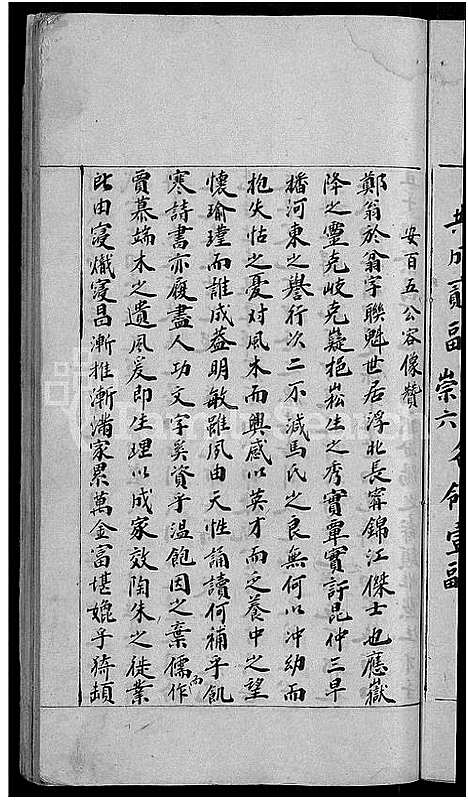 安百五公容像贊
鄭翁於翁字聯魁世居浮北長寗錦江傑士也應嶽
降之靈克岐克嶷挹崧生之秀實覃實訏昆仲三早
播河東之譽行次二不減馬氏之良無何以冲幼而
抱失怙之憂对風木而興感以英才而乏養中之望
懷瑜瑾而誰成益明敏雖夙由天性誦讀何補乎飢
寒詩書亦廢盡人功文字奚資乎温飽因之棄儒作
賈慕端木之遺風爰即生理以成家效陶朱之徙業
所由寖熾寖昌漸推漸滿家累萬金富堪媲乎猗頓